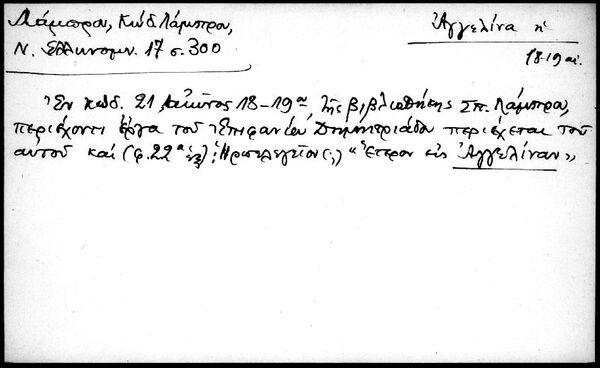 Λάμπρου, Κώδ Λάμπρου,
Ν. Ἑλληνομν. 17 σ. 300
Ἀγγελίνα ἡ
18-19 αἰ.
Ἐν κώδ. 21, αἰῶνος 18-19ου τῆς βιβλιοθήκης Σπ. Λάμπρου,
περιέχοντι ἔργα τοῦ Ἐπιφανίου Δημητριάδου περιέχεται τοῦ
αὐτοῦ καί (φ. 22α ἑξ) : Ἡρωελεγεῖον (;) "Ἕτερον εἰς Ἀγγελίναν"